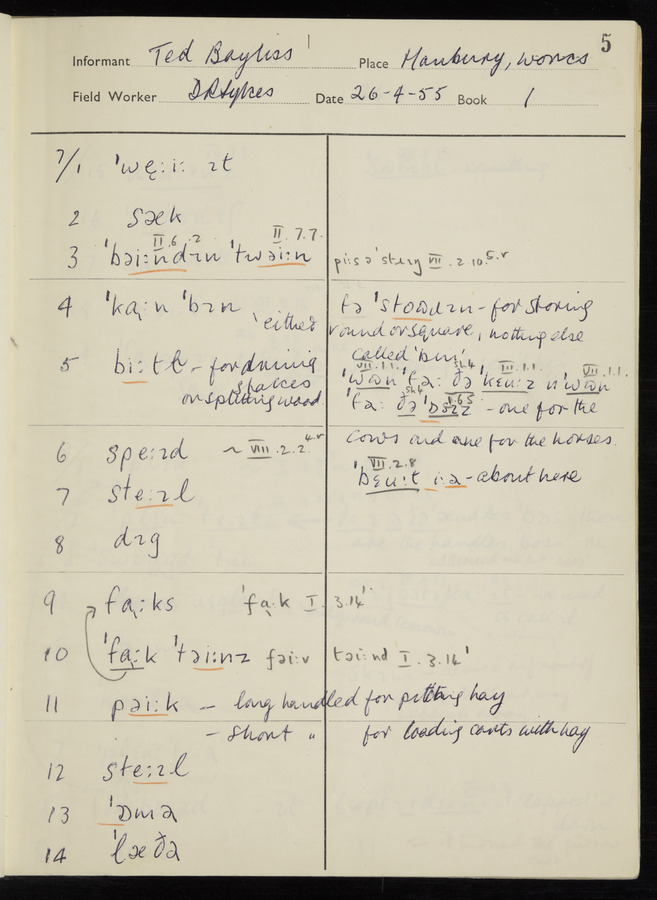 5
Informant Ted Bayliss Place Hanbury, Worcs
Field Worker DRSykes Date 26-4-55 Book 1
7/1 ˈwę:i: ɪt
2 sæk
II.6.2 II.7.7.
3 ˈbəi:ndɪn ˈtwəi:n pi:s ə ˈstɪŋ VII.2.10.5.r
4 ˈkạ:n ˈbɪn either tə ˈstoədɪn - for storing
round or square, nothing else
called ˈbɪnˈ
5 bi:tl - for driving
stakes
or splitting wood.
VII.1.1. sh4 III.1.1. VII.1.1.
ˈwɒn ˈfə: ðə ˈkɛu:z n ˈwɒn
ˈfə: ðə ˈɒsɪz - one for the
cows and one for the horses.
6 spe:ɪd ~ VIII.2.2.4.r
VII.2.8
7 ste:ɪl ˈbɛu:t i:ə - about here
8 dɪg
9 fạ:ks ˈfạ:k I.3.14ˈ
10 ˈfạ:k ˈtəi:nz fəi:v təi:nd I.3.14ˈ
11 pəi:k - long handled for pitting hay
- short " for loading carts with hay
12 ste:ɪl
13 ˈɒmə
14 ˈlæðə